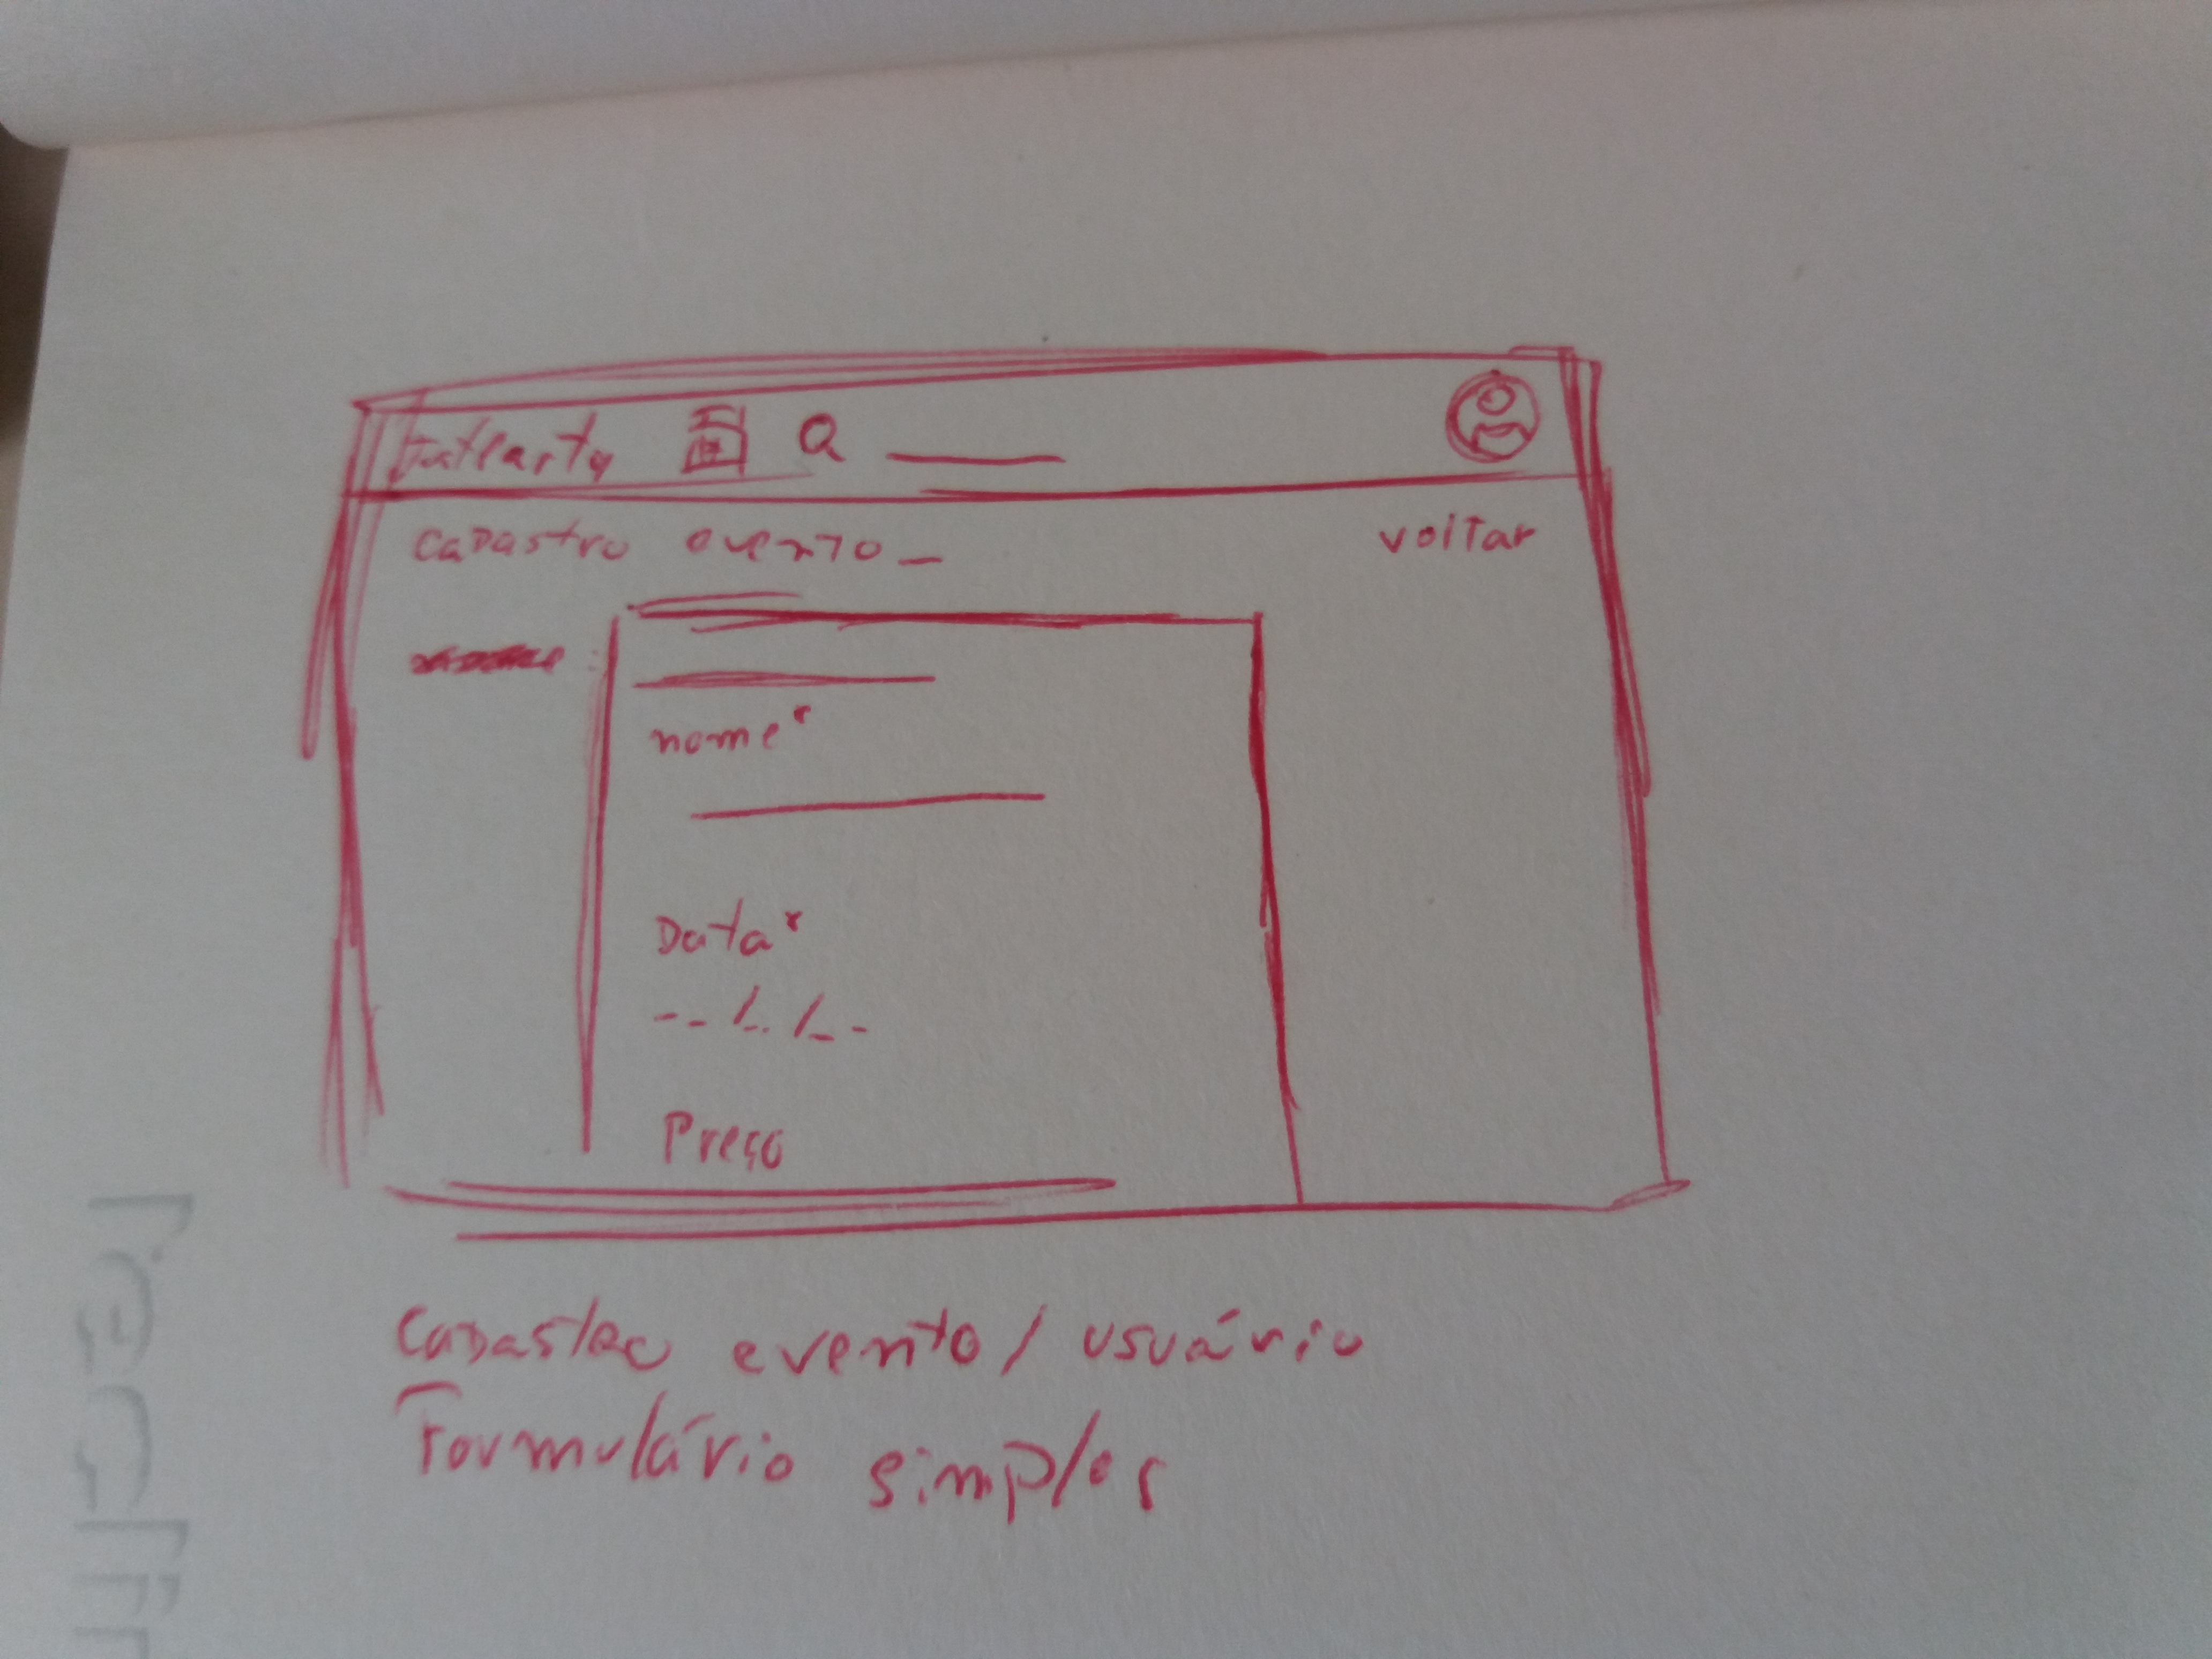 cadastro evento_ voltar
nome*
Data*
--/--/--
Preço
Cadastro evento/usuário
Formulário simples